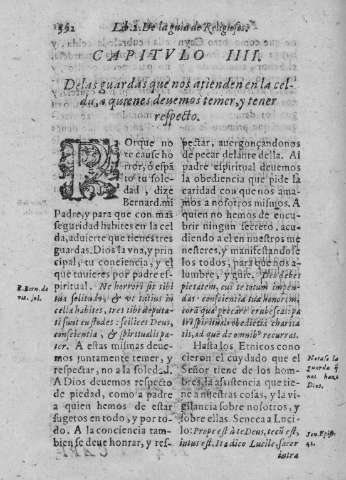 592 Lib. 2. De la guia de Religiosos
CAPITVLO IIII.
De las guardas que nos atienden en la cel-
da, a quienes deuemos temer, y tener
respecto.
POrque no
te cause ho
rror, ò espã
to tu sole-
dad, dize
Bernard. mi
Padre, y para que con mas
seguridad habites en la cel
da, aduierte que tienes tres
guardas. Dios la vna, y prin
cipal, tu conciencia, y el
que tuuieres por padre es-
piritual. Ne horrori sit tibi
tua solitudo, & vt tutius in
cella habites, tres tibi deputa-
ti sunt custodes: scilicet Deus,
conscientia, & spiritualis pa-
ter. A estas mismas deue-
mos juntamente temer, y
respectar, no a la soledad.
A Dios deuemos respecto
de piedad, como a padre
a quien hemos de estar
sugetos en todo, y por to-
do. A la conciencia tam-
bien se deue honrar, y res-
S. Bern. de
vit. sol.
pectar, auergonçandonos
de pecar delante della. Al
padre espiritual deuemos
la obediencia que pide la
caridad con que nos ama-
mos a nosotros mismos. A
quien no hemos de encu-
brir ningun secreto, acu-
diendo a el en nuestros me
nesteres, y manifestandose
los todos, para que nos a-
lumbre, y guie. Deo debes
pietatem, cui te totum impen-
das: conscientiæ tuæ honorem,
coram qua peccare erubescas: pa-
tri spirituali obedientiã charita
tis, ad quem de omnibus recurras.
Hasta los Etnicos cono
cieron el cuydado que el
Señor tiene de los hom-
bres, la asistencia que tie-
ne a nuestras cosas, y la vi-
gilancia sobre nosotros, y
sobre ellas. Seneca a Luci-
lo: Prope est à te Deus, tecũ est,
intus est. Ita dico Lucile, sacer
intra
Notase la
guarda q̃
nos haze
Dios.
Sen. Epist.
41.